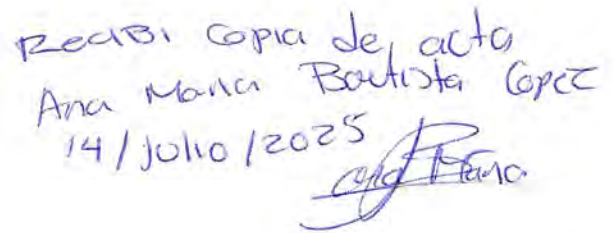 Recibi copia de acta
Ana Maria Bautista Lopez
14/Julio/2025
Ana Maria